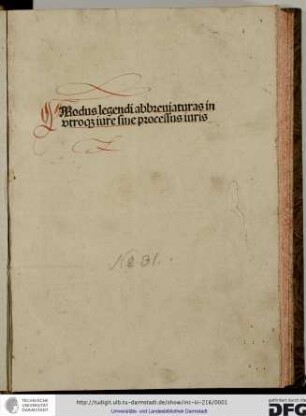 Modus legendi abbreuiaturas in
vtroqȝ iure siue processus iuris
No 31.
TECHNISCHE
UNIVERSITÄT
DARMSTADT
http://tudigit.ulb.tu-darmstadt.de/show/inc-iv-216/0001
Universitäts- und Landesbibliothek Darmstadt
DFG